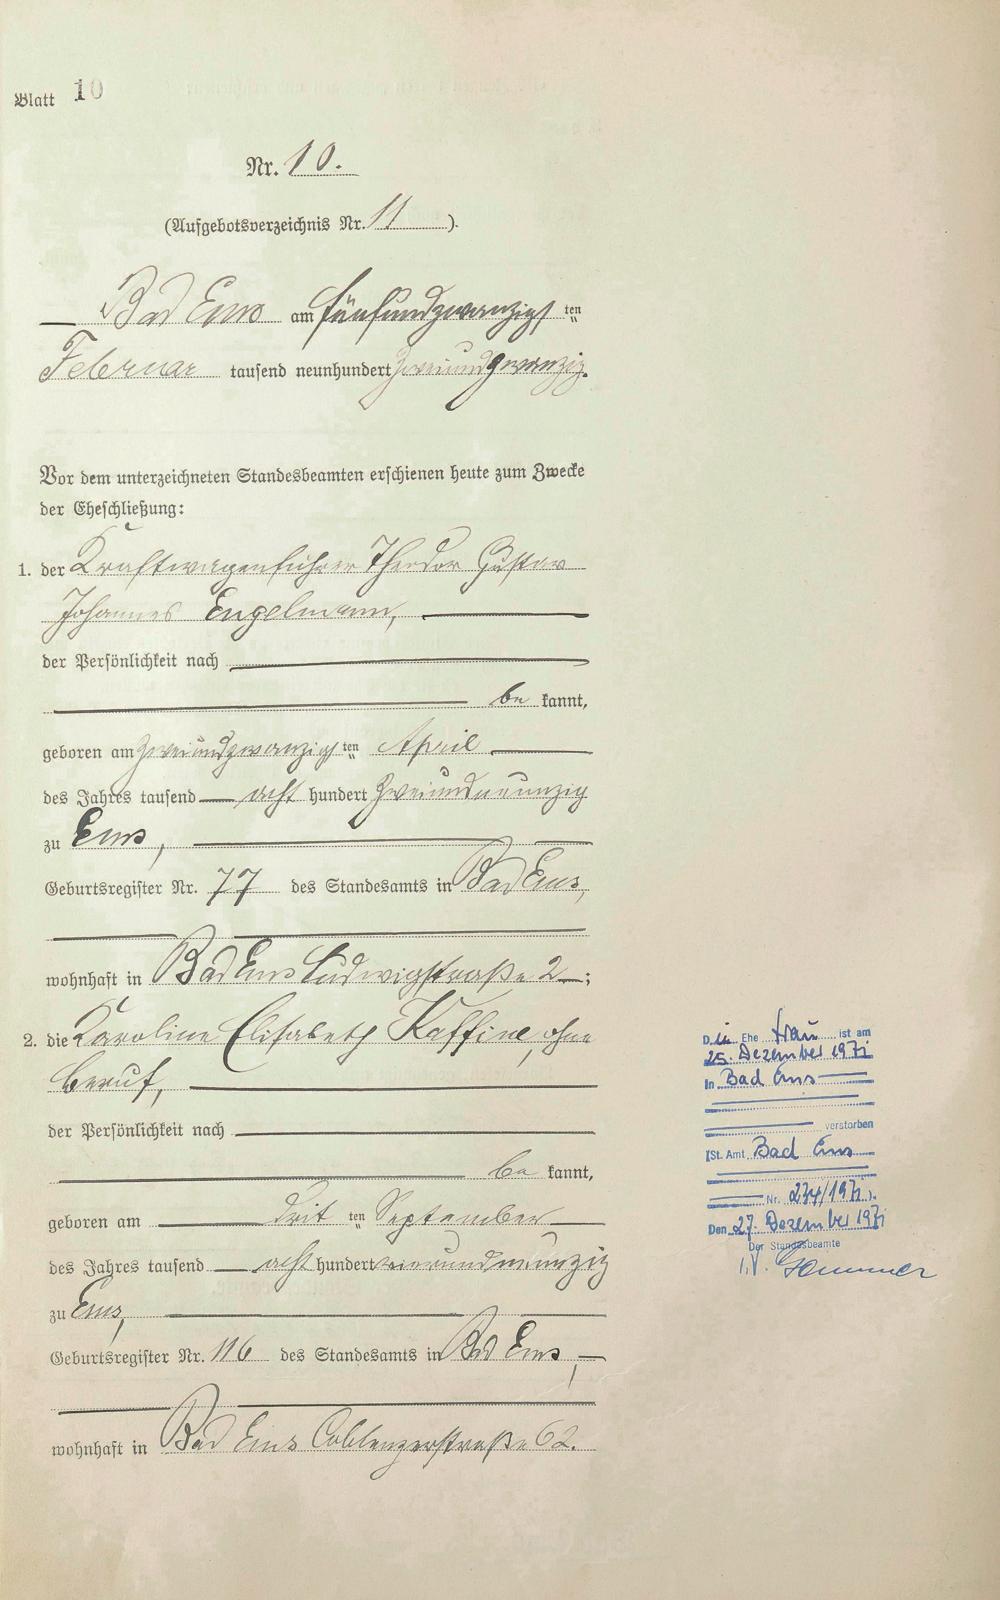 Blatt 10
Nr. 10.
(Aufgebotsverzeichnis Nr. 11).
Bad Ems am fünfundzwanzigsten
Februar tausend neunhundert zweiundzwanzig.
Vor dem unterzeichneten Standesbeamten erschienen heute zum Zwecke
der Eheschließung:
1. der Kraftwagenführer Theodor Gustav
Johannes Engelmann,
der Persönlichkeit nach
be kannt,
geboren am zweiundzwanzigsten April
des Jahres tausend acht hundert zweiundneunzig
zu Ems,
Geburtsregister Nr. 77 des Standesamts in Bad Ems,
wohnhaft in Bad Ems Ludwigstraße 2;
2. die Karoline Elisabeth Kaffine, ohne
Beruf,
der Persönlichkeit nach
be kannt,
geboren am dritten September
des Jahres tausend acht hundert vierundneunzig
zu Ems,
Geburtsregister Nr. 116 des Standesamts in Bad Ems,
wohnhaft in Bad Ems Coblenzerstraße 62.
Die Ehefrau ist am
25. Dezember 1971
in Bad Ems
verstorben
(St. Amt Bad Ems
Nr. 274/1971).
Den 27. Dezember 1971
Der Standesbeamte
I.V.